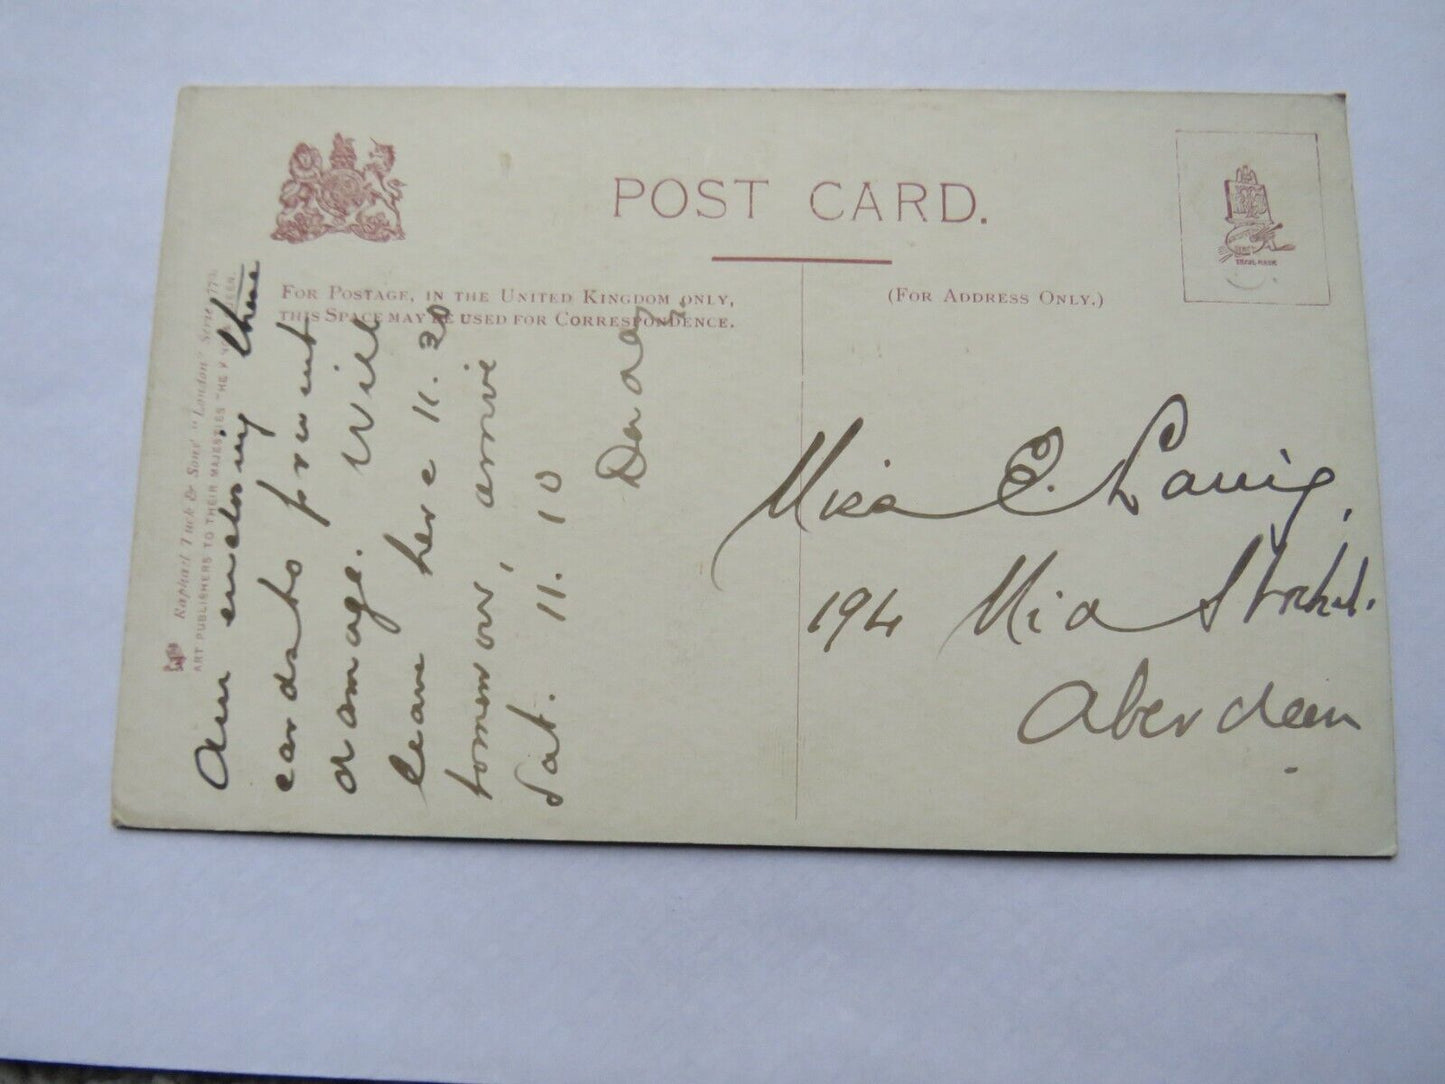 POST CARD.
FOR POSTAGE, IN THE UNITED KINGDOM ONLY,
THIS SPACE MAY BE USED FOR CORRESPONDENCE.
(FOR ADDRESS ONLY.)
Raphael Tuck & Sons' "London" Serie
ART PUBLISHERS TO THEIR MAJESTIES THE KING & QUEEN.
Am enclosing these
cards to prevent
damage. Will
leave here 11.20
tomorrow, arrive
Sat. 11. 10
Miss E.
194 Mid
Aberdeen